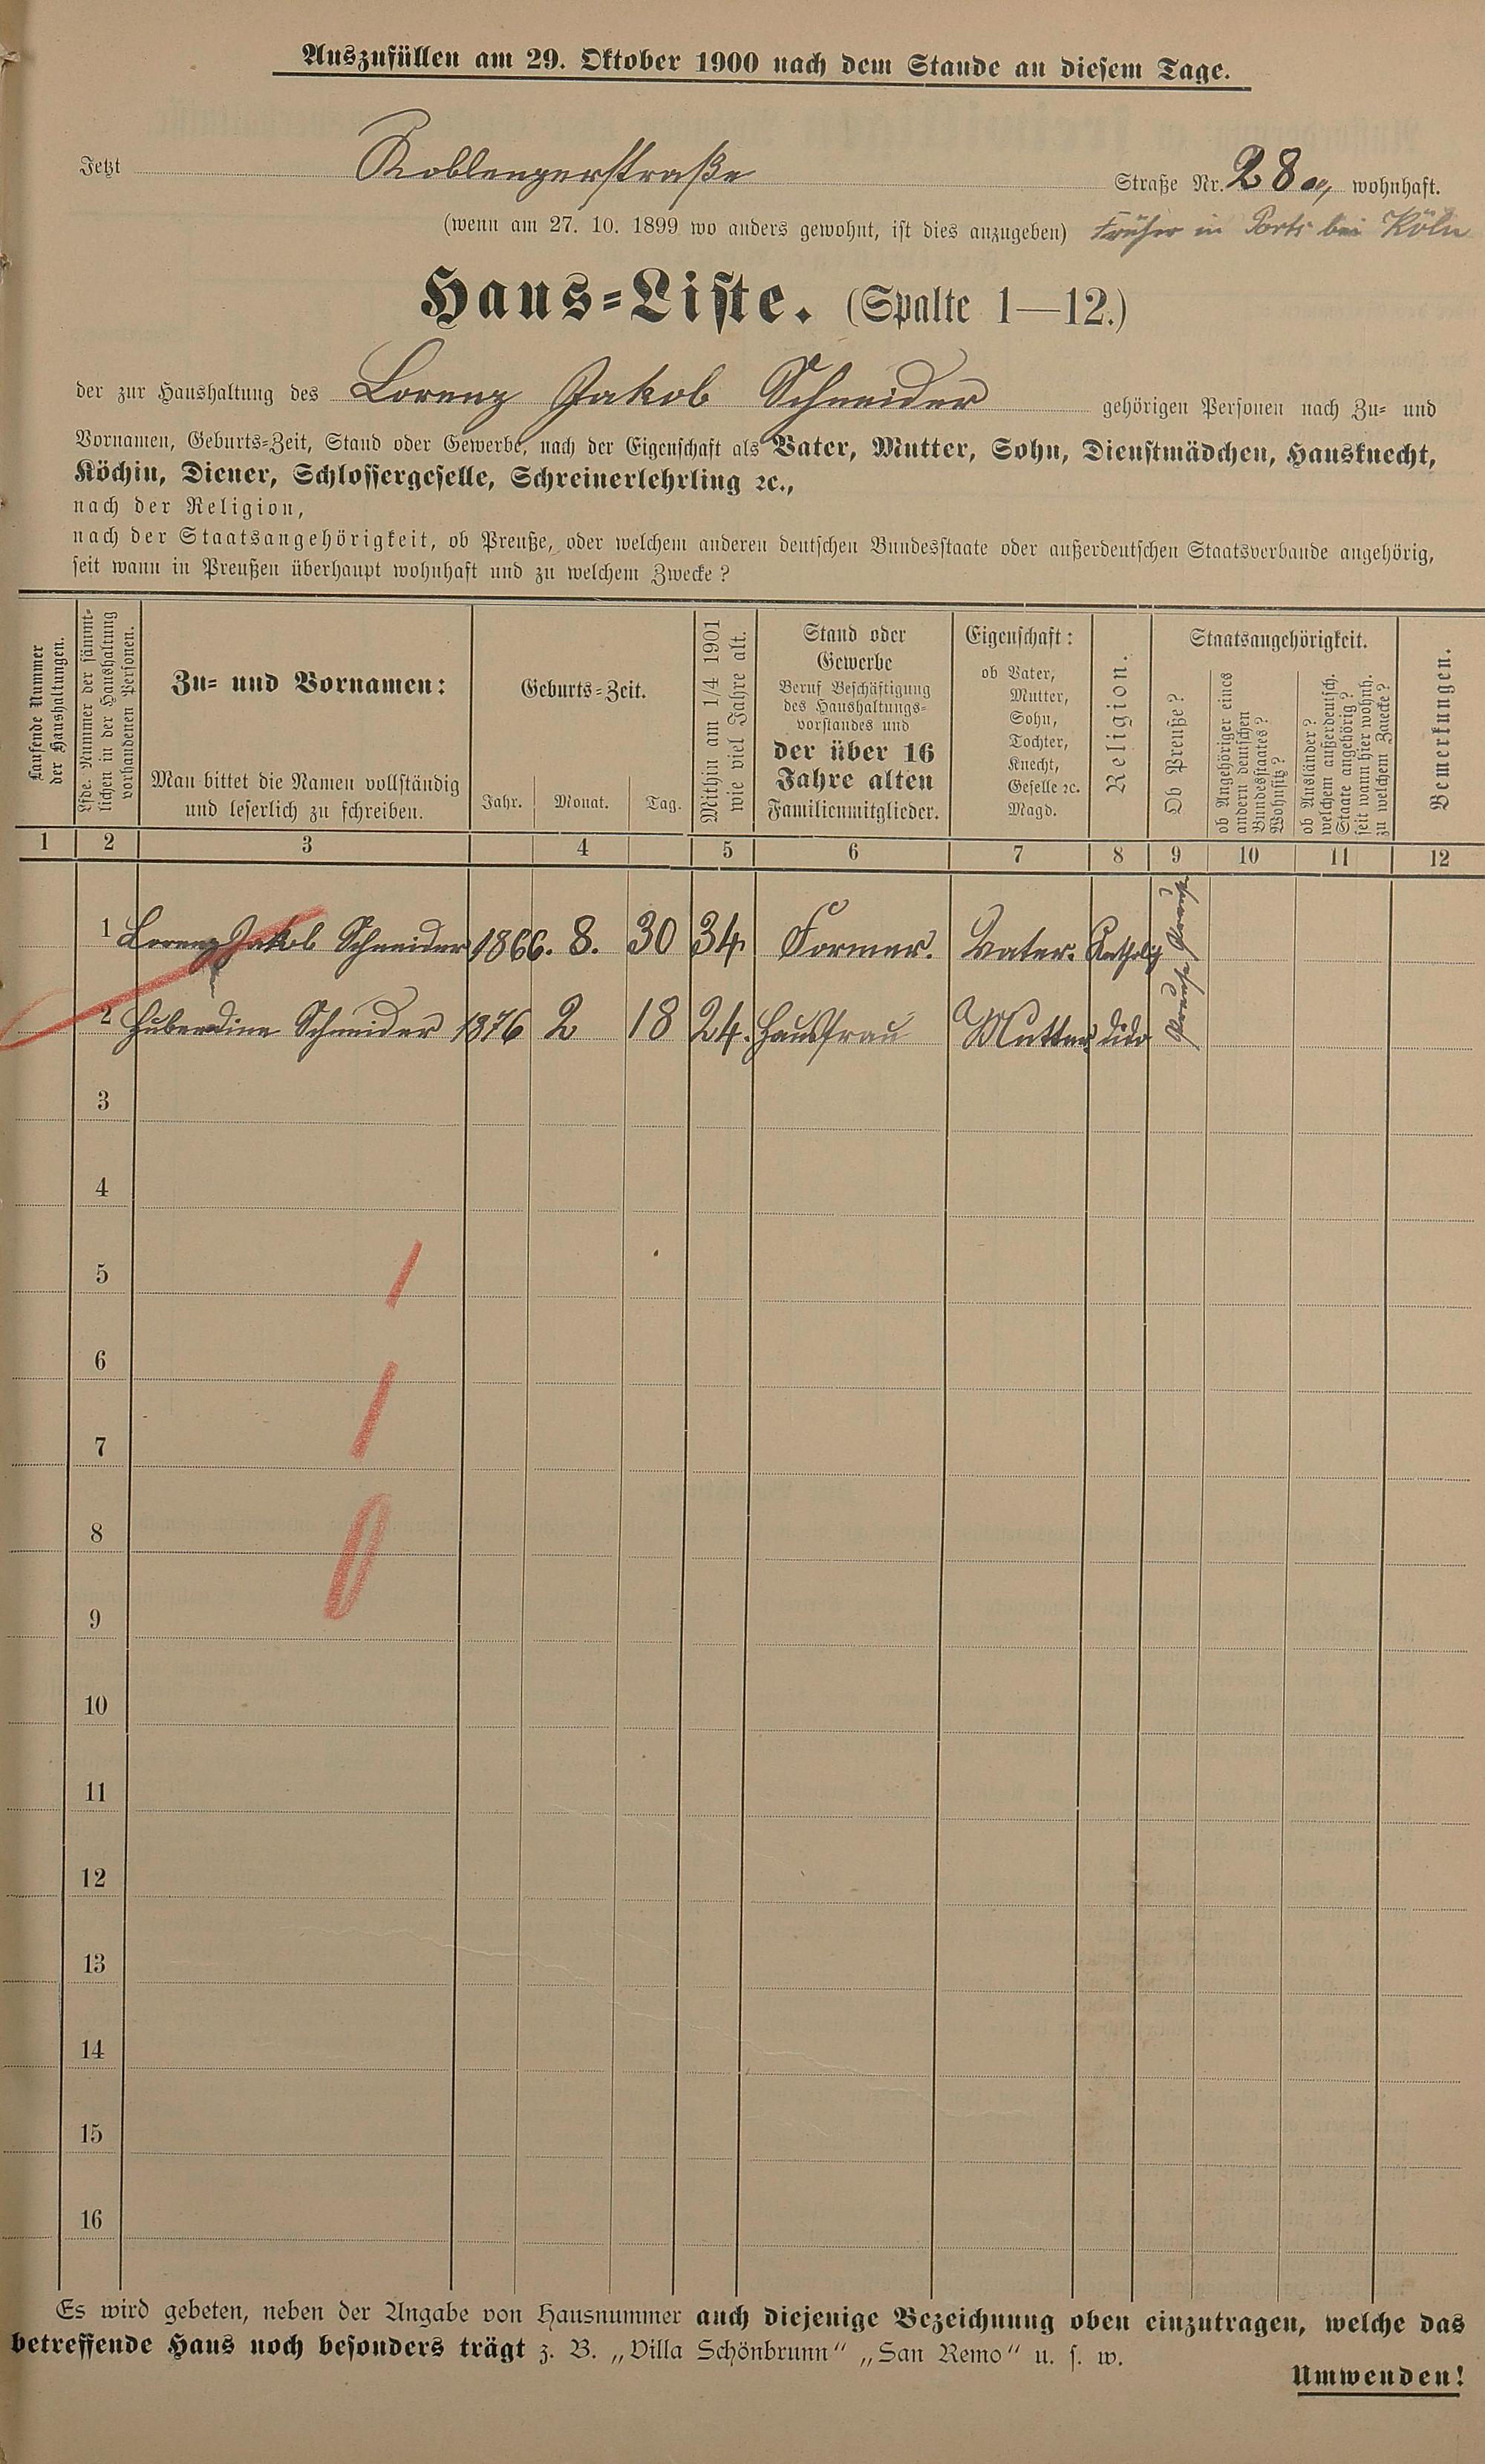 Auszufüllen am 29. Oktober 1900 nach dem Stande an diesem Tage.
Jetzt Koblenzerstraße Straße Nr. 28a, wohnhaft.
(wenn am 27. 10. 1899 wo anders gewohnt, ist dies anzugeben) Früher in Ports bei Köln
Haus=Liste. (Spalte 1—12.)
der zur Haushaltung des Lorenz Jakob Schneider gehörigen Personen nach Zu= und
Vornamen, Geburts=Zeit, Stand oder Gewerbe, nach der Eigenschaft als Vater, Mutter, Sohn, Dienstmädchen, Hausknecht,
Köchin, Diener, Schlossergeselle, Schreinerlehrling ꝛc.,
nach der Religion,
nach der Staatsangehörigkeit, ob Preuße, oder welchem anderen deutschen Bundesstaate oder außerdeutschen Staatsverbande angehörig,
seit wann in Preußen überhaupt wohnhaft und zu welchem Zwecke?
Laufende Nummer
der Haushaltungen.
Lfde. Nummer der sämmt=
lichen in der Haushaltung
vorhandenen Personen.
Zu= und Vornamen:
Man bittet die Namen vollständig
und leserlich zu schreiben.
Geburts=Zeit.
Jahr. Monat. Tag.
Mithin am 1/4 1901
wie viel Jahre alt.
Stand oder
Gewerbe
Beruf Beschäftigung
des Haushaltungs=
vorstandes und
der über 16
Jahre alten
Familienmitglieder.
Eigenschaft:
ob Vater,
Mutter,
Sohn,
Tochter,
Knecht,
Geselle ꝛc.
Magd.
Religion.
Staatsangehörigkeit.
Ob Preuße?
ob Angehöriger eines
andern deutschen
Bundesstaates?
Wohnsitz?
ob Ausländer?
welchem außerdeutsch.
Staate angehörig?
seit wann hier wohnh.
zu welchem Zwecke?
Bemerkungen.
1 2 3 4 5 6 7 8 9 10 11 12
1 Lorenz Jakob Schneider 1866. 8. 30 34. Former. Vater. Katholig
2 Huberdina Schneider 1876 2 18 24. Hausfrau Mutter dido
3
4
5
6
7
8
9
10
11
12
13
14
15
16
Es wird gebeten, neben der Angabe von Hausnummer auch diejenige Bezeichnung oben einzutragen, welche das
betreffende Haus noch besonders trägt z. B. „Villa Schönbrunn“ „San Remo“ u. s. w.
Umwenden!